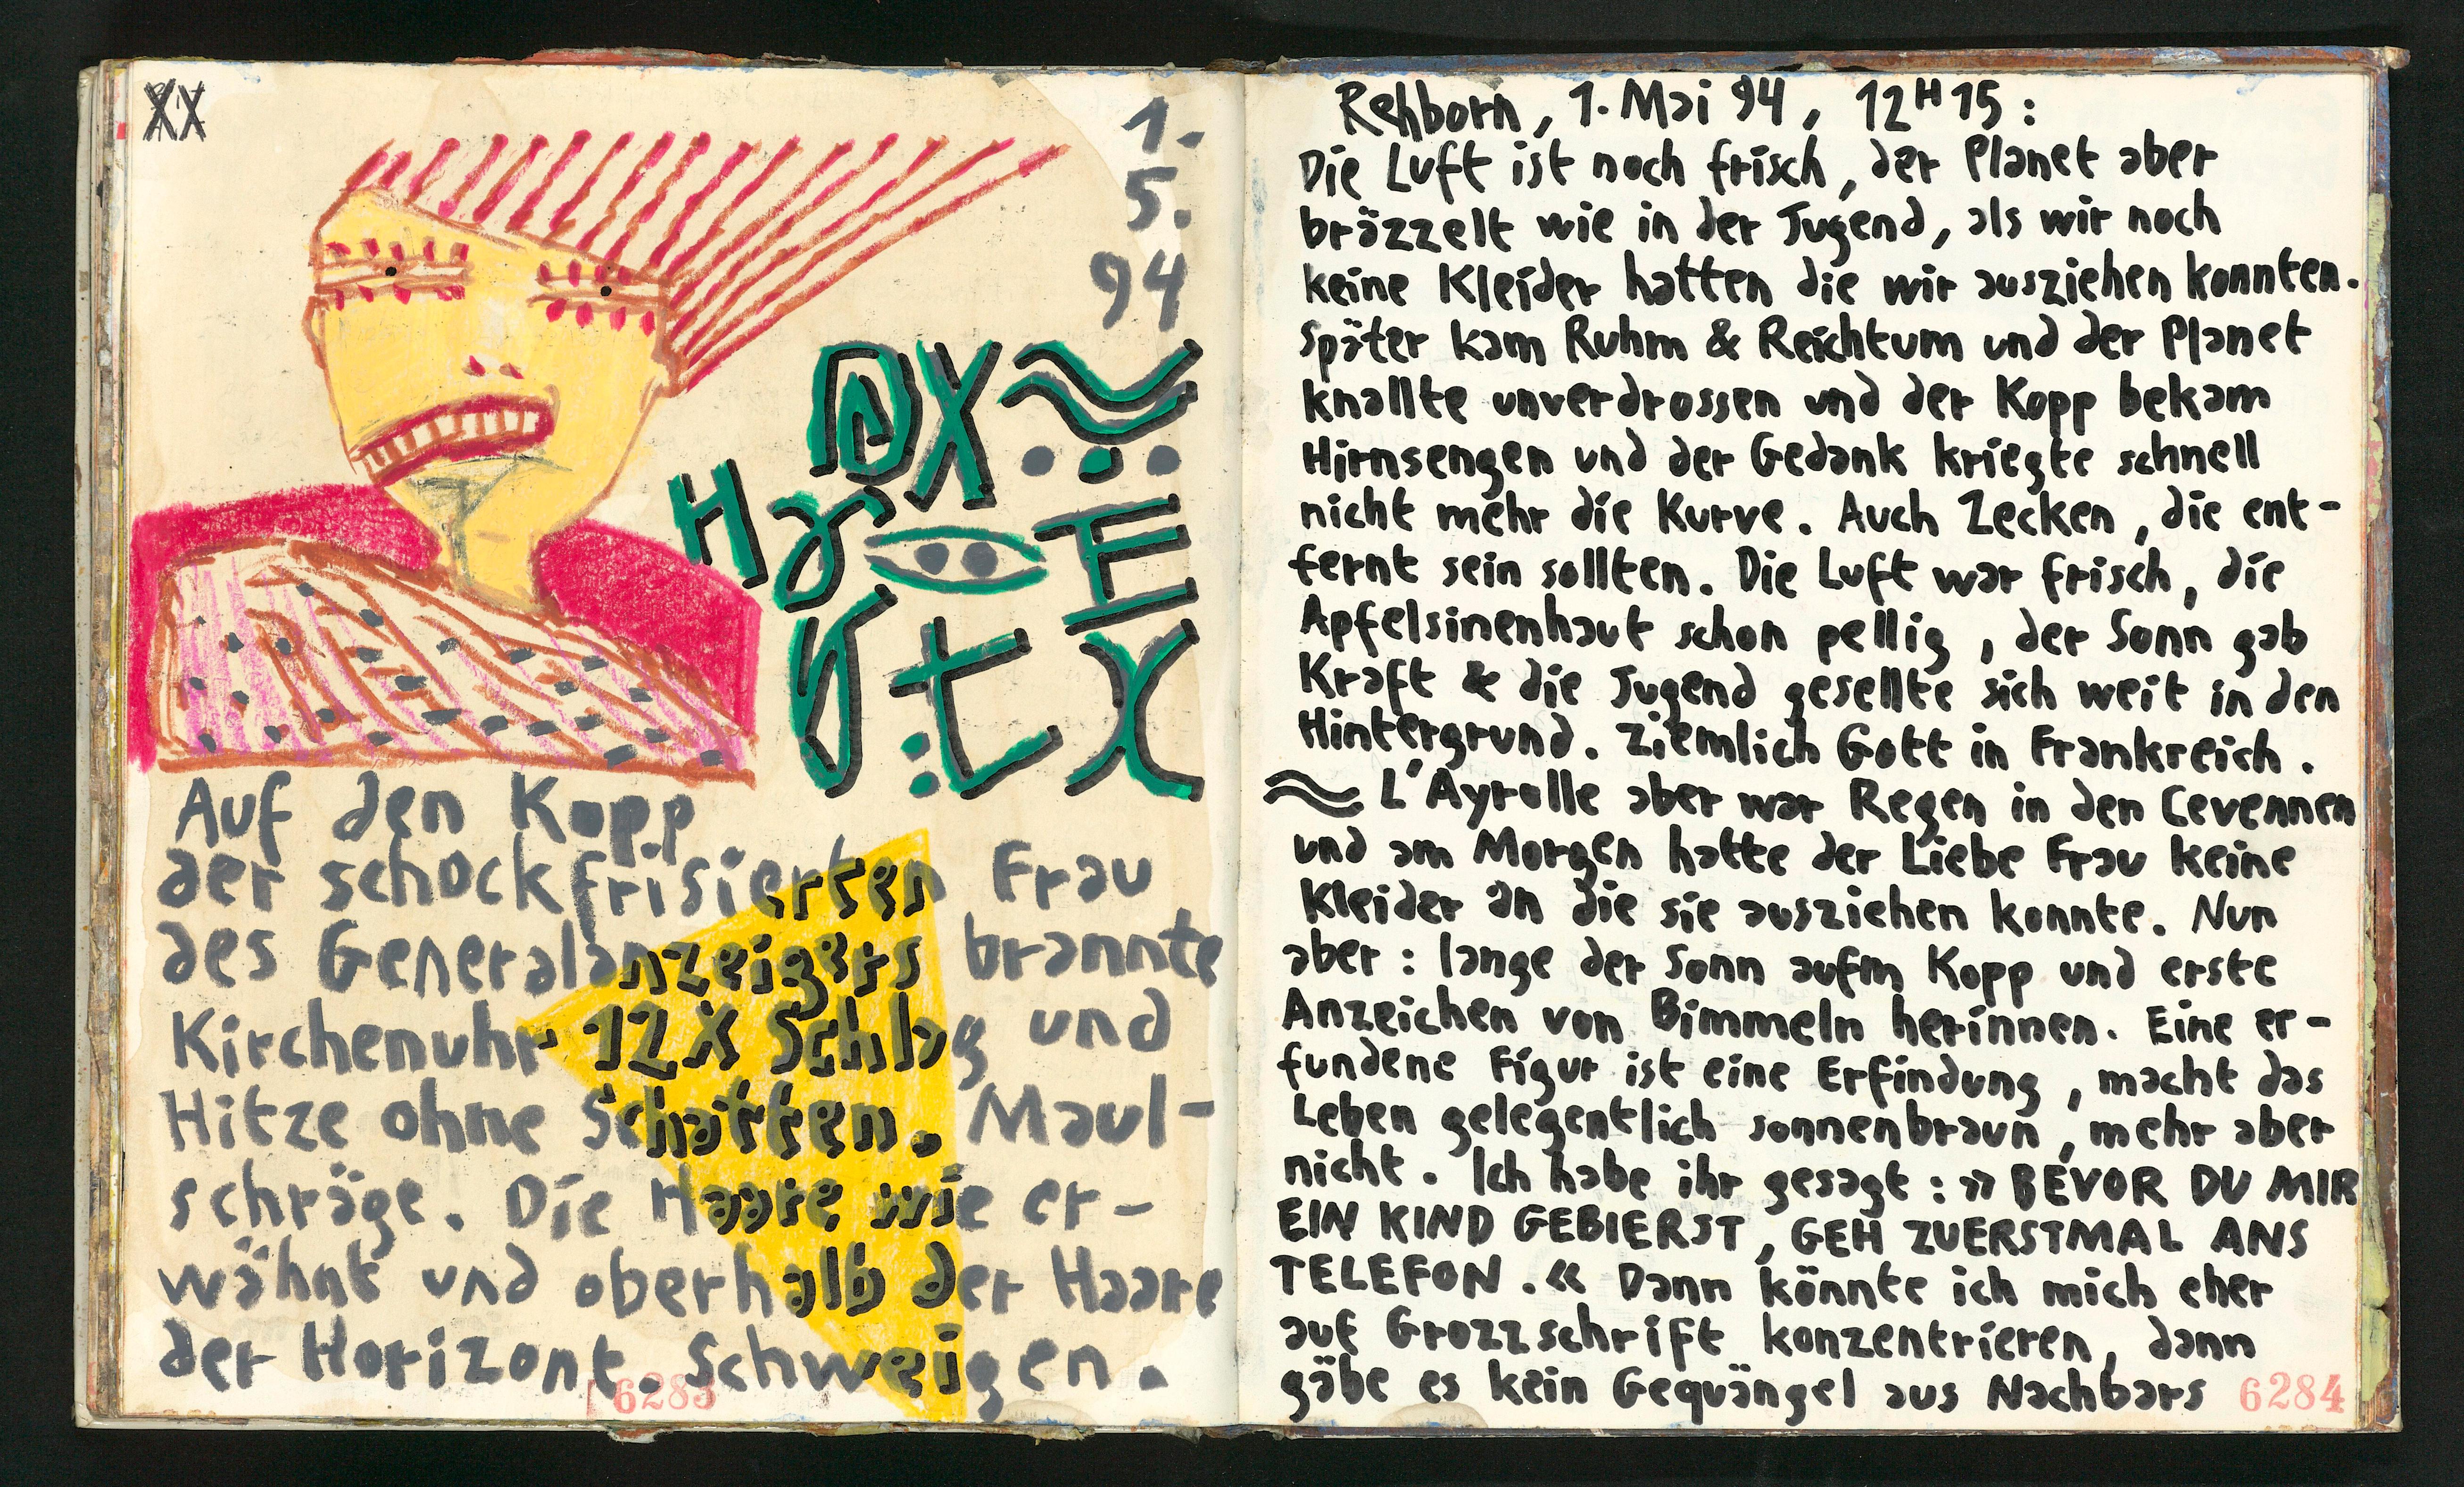 XX
1.
5.
94
Auf den Kopp
der schockfrisierten Frau
des Generalanzeigers brannte
Kirchenuhr 12X Schlag und
Hitze ohne Schatten. Maul-
schräge. Die Haare wie er-
wähnt und oberhalb der Haare
der Horizont. Schweigen.
6283
Rehborn, 1. Mai 94, 12H15:
Die Luft ist noch frisch, der Planet aber
bräzzelt wie in der Jugend, als wir noch
keine Kleider hatten die wir ausziehen konnten.
Später kam Ruhm & Reichtum und der Planet
knallte unverdrossen und der Kopp bekam
Hirnsengen und der Gedank kriegte schnell
nicht mehr die Kurve. Auch Zecken, die ent-
fernt sein sollten. Die Luft war frisch, die
Apfelsinenhaut schon pellig, der Sonn gab
Kraft & die Jugend gesellte sich weit in den
Hintergrund. Ziemlich Gott in Frankreich.
≈ L'Ayrolle aber war Regen in den Cevennen
und am Morgen hatte der Liebe Frau keine
Kleider an die sie ausziehen konnte. Nun
aber: lange der Sonn aufm Kopp und erste
Anzeichen von Bimmeln herinnen. Eine er-
fundene Figur ist eine Erfindung, macht das
Leben gelegentlich sonnenbraun, mehr aber
nicht. Ich habe ihr gesagt: »BEVOR DU MIR
EIN KIND GEBIERST, GEH ZUERSTMAL ANS
TELEFON.« Dann könnte ich mich eher
auf Grozzschrift konzentrieren, dann
gäbe es kein Gequängel aus Nachbars
6284